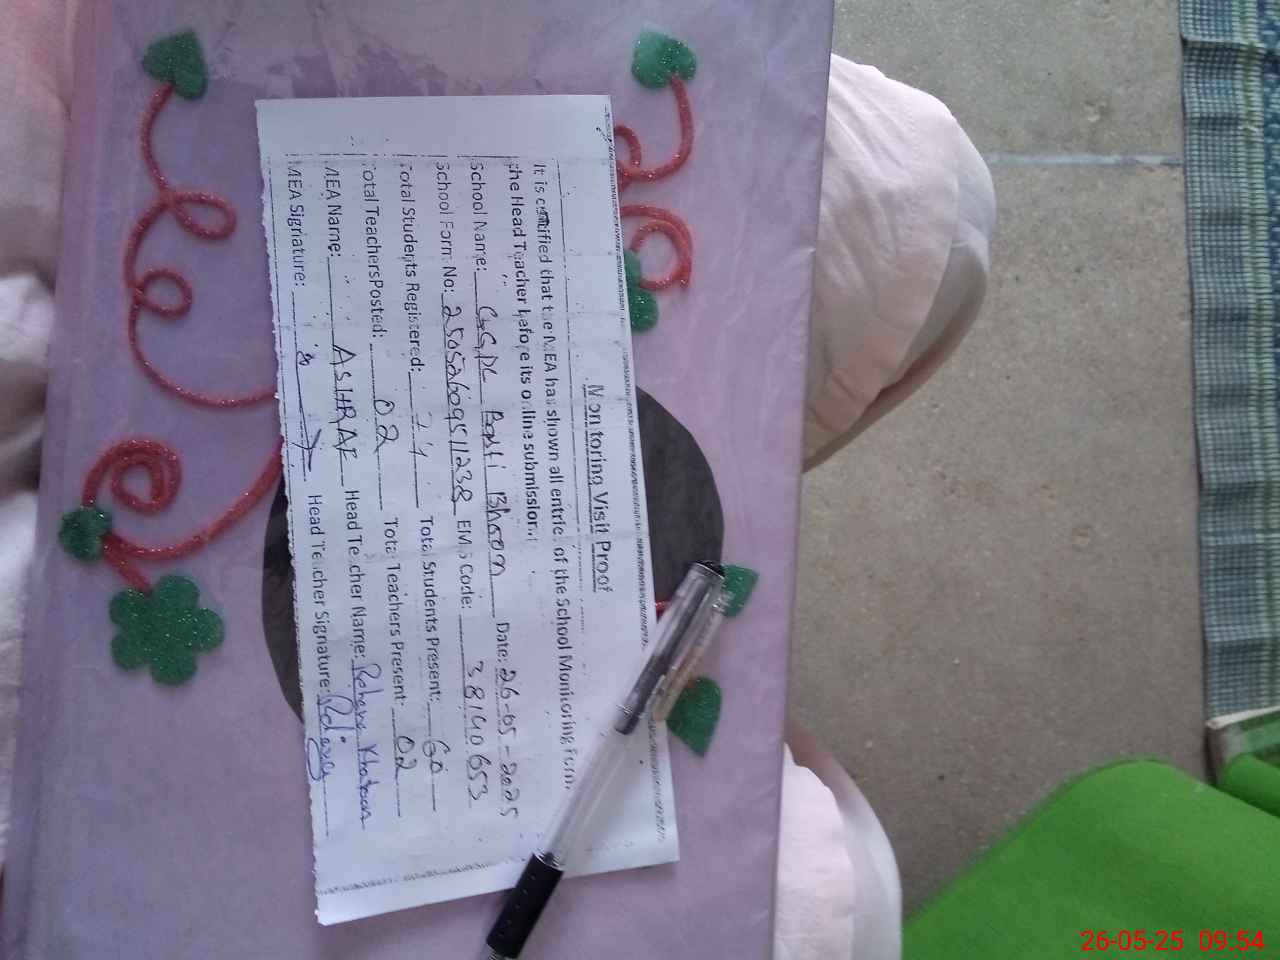 Monitoring Visit Proof
It is certified that the MEA has shown all entries of the School Monitoring Form
the Head Teacher before its online submission.
School Name: Date: 26-05-2025
School Form No: 25052609511238 EMIS Code: 38140653
Total Students Registered: 74 Total Students Present: 60
Total Teachers Posted: 02 Total Teachers Present: 02
MEA Name: ASHRAF Head Teacher Name: Khatoon
MEA Signature: Head Teacher Signature:
26-05-25 09:54